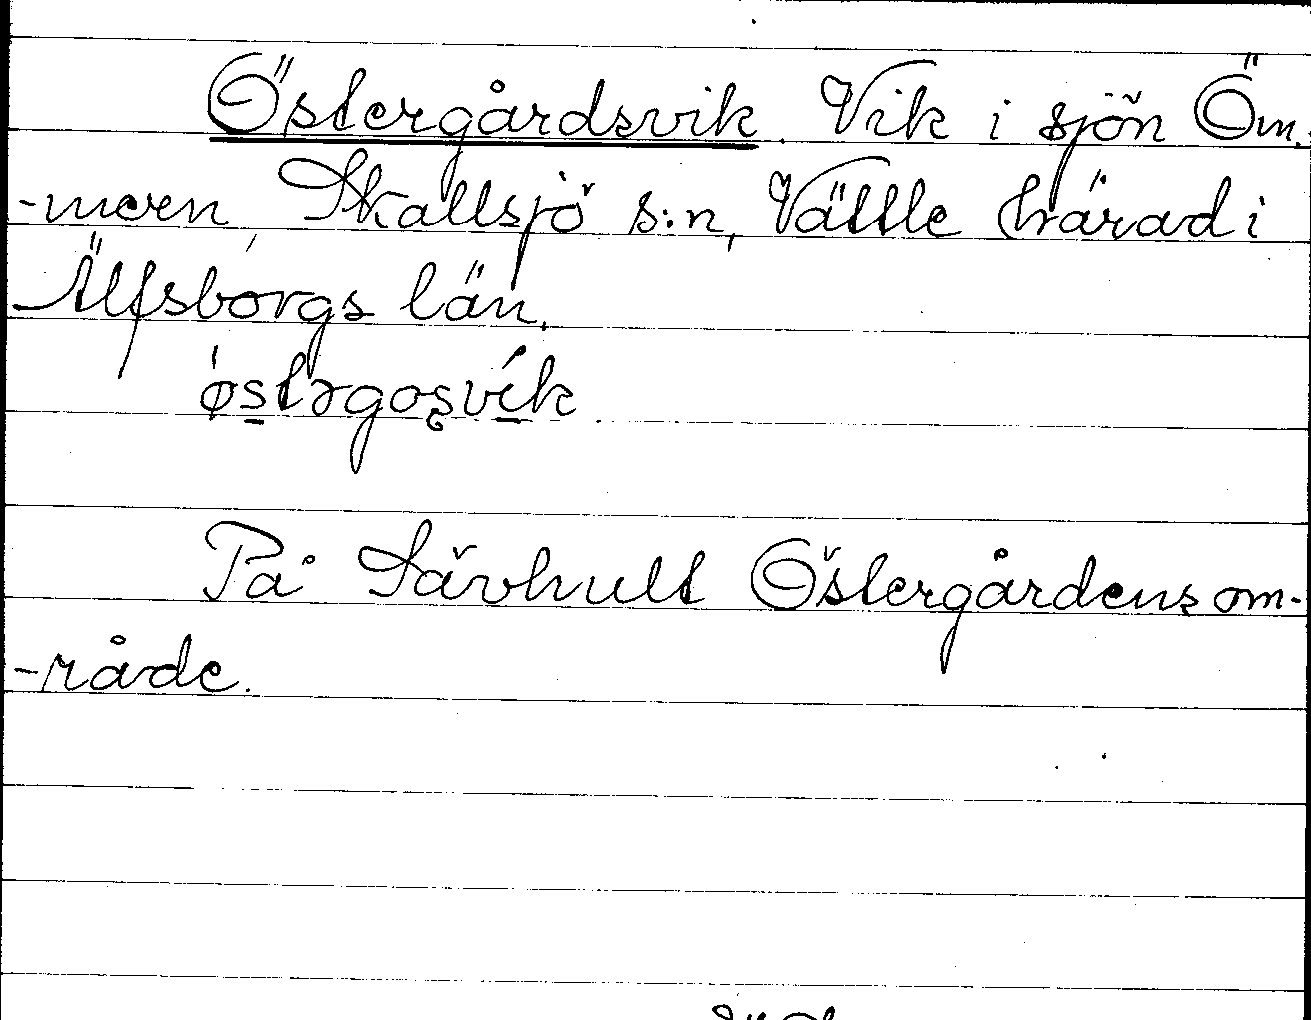 Östergårdsvik. Vik i sjön Öm-
-mern, Skallsjö s:n, Vättle härad i
Älfsborgs län.
østərgos̨vík.
På Sävhult Östergårdens om-
-råde.